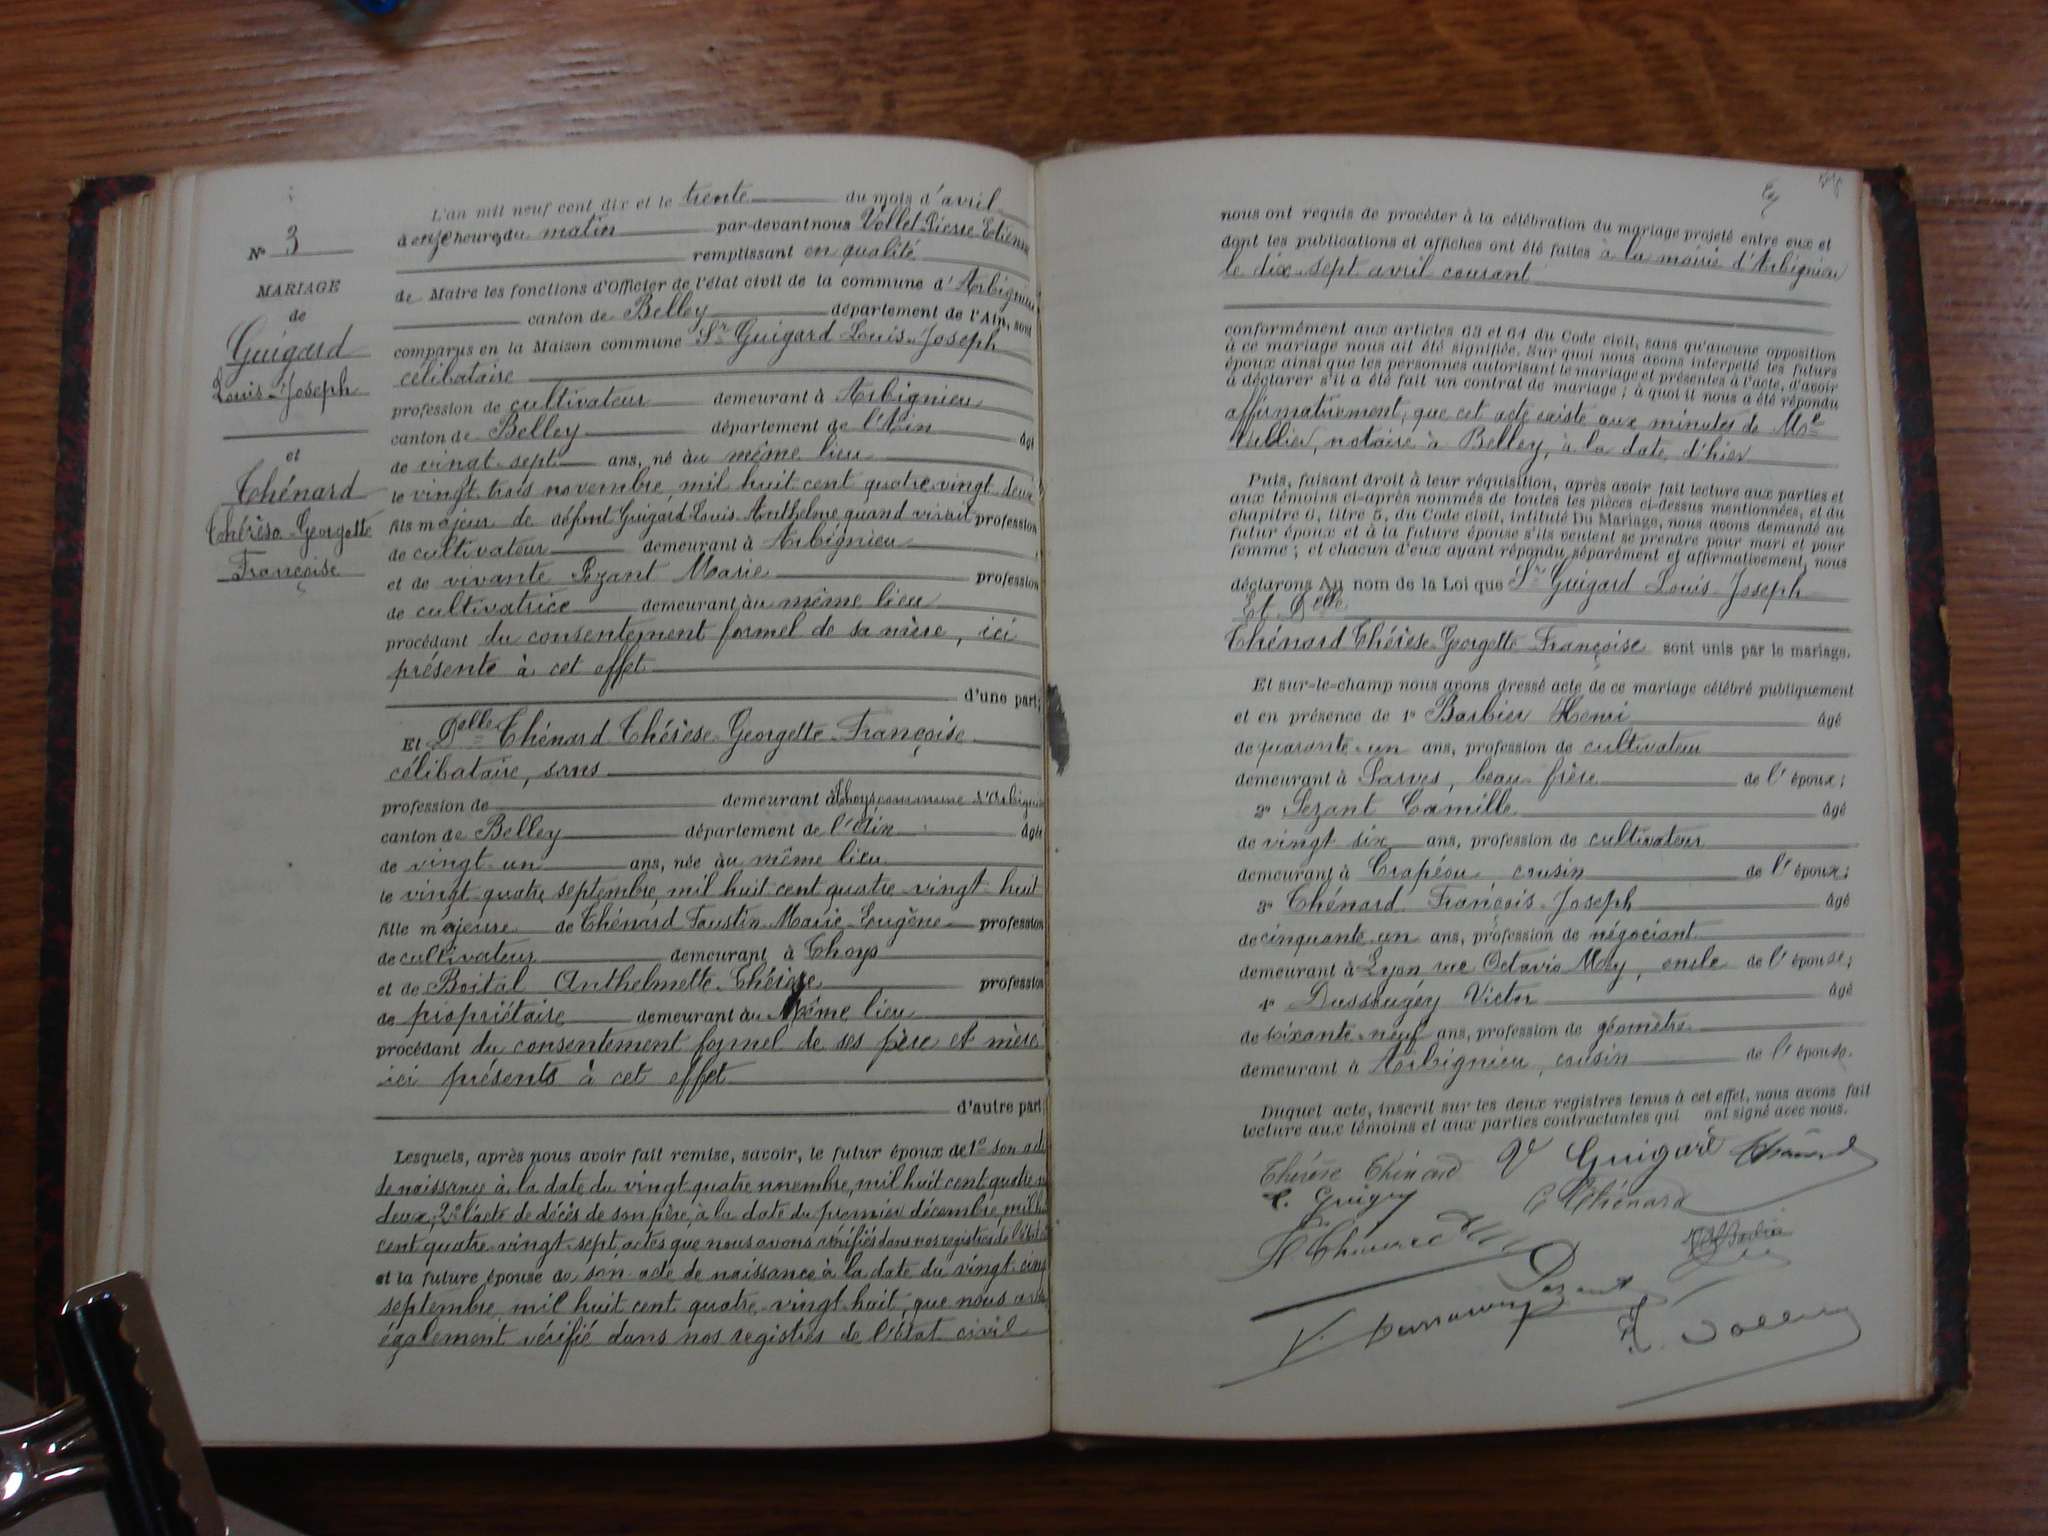 N° 3
MARIAGE
de
Guigard
Louis-Joseph
et
Thénard
Thérèse-Georgette
Françoise
L'an mil neuf cent dix et le trente du mois d'avril
à onze heures du matin par-devant nous Vollet Pierre Etienne
remplissant en qualité
de Maire les fonctions d'Officier de l'état civil de la commune d'Arbignieu
canton de Belley département de l'Ain, sont
comparus en la Maison commune Sr Guigard Louis-Joseph
célibataire
profession de cultivateur demeurant à Arbignieu
canton de Belley département de l'Ain âgé
de vingt-sept ans, né au même lieu
le vingt-trois novembre, mil huit cent quatre-vingt-deux
fils majeur de défunt Guigard Louis-Anthelme quand vivait profession
de cultivateur demeurant à Arbignieu
et de vivante Pezant Marie profession
de cultivatrice demeurant au même lieu
procédant du consentement formel de sa mère, ici
présente à cet effet
d'une part;
Et Delle Thénard Thérèse-Georgette-Françoise
célibataire, sans
profession de demeurant à Thoys commune d'Arbignieu
canton de Belley département de l'Ain âgée
de vingt-un ans, née au même lieu
le vingt-quatre septembre, mil huit cent quatre-vingt-huit
fille majeure de Thénard Faustin-Marie-Eugène profession
de cultivateur demeurant à Thoys
et de Boital Anthelmette-Thérèse profession
de propriétaire demeurant au Même lieu
procédant du consentement formel de ses père et mère
ici présents à cet effet
d'autre part;
Lesquels, après nous avoir fait remise, savoir, le futur époux de 1° son acte
de naissance à la date du vingt-quatre novembre, mil huit cent quatre
deux; 2° l'acte de décès de son père, à la date du premier décembre, mil
cent quatre-vingt-sept, actes que nous avons vérifiés dans nos registres de l'état
et la future épouse de son acte de naissance à la date du vingt-cinq
septembre, mil huit cent quatre-vingt-huit, que nous avons
également vérifié dans nos registres de l'état civil
nous ont requis de procéder à la célébration du mariage projeté entre eux et
dont les publications et affiches ont été faites à la mairie d'Arbignieu
le dix-sept avril courant
conformément aux articles 63 et 64 du Code civil, sans qu'aucune opposition
à ce mariage nous ait été signifiée. Sur quoi nous avons interpellé les futurs
époux ainsi que les personnes autorisant le mariage et présentes à l'acte, d'avoir
à déclarer s'il a été fait un contrat de mariage; à quoi il nous a été répondu
affirmativement, que cet acte existe aux minutes de Me
notaire à Belley, à la date d'hier
Puis, faisant droit à leur réquisition, après avoir fait lecture aux parties et
aux témoins ci-après nommés de toutes les pièces ci-dessus mentionnées, et du
chapitre 6, titre 5, du Code civil, intitulé Du Mariage, nous avons demandé au
futur époux et à la future épouse s'ils veulent se prendre pour mari et pour
femme; et chacun d'eux ayant répondu séparément et affirmativement, nous
déclarons Au nom de la Loi que Sr Guigard Louis-Joseph
Et Delle
Thénard Thérèse-Georgette-Françoise sont unis par le mariage.
Et sur-le-champ nous avons dressé acte de ce mariage célébré publiquement
et en présence de 1° Barbier Henri âgé
de quarante-un ans, profession de cultivateur
demeurant à Parves, beau-frère de l'époux;
2° Pezant Camille âgé
de vingt-six ans, profession de cultivateur
demeurant à Crapéou cousin de l'époux;
3° Thénard François-Joseph âgé
de cinquante-un ans, profession de négociant
demeurant à Lyon rue Octavio Mey, oncle de l'épouse;
4° Dussaugey Victor âgé
de soixante-neuf ans, profession de géomètre
demeurant à Arbignieu, cousin de l'épouse.
Duquel acte, inscrit sur les deux registres tenus à cet effet, nous avons fait
lecture aux témoins et aux parties contractantes qui ont signé avec nous.
Thérèse Thénard Vve Guigard Thénard
C Thénard
Pezant